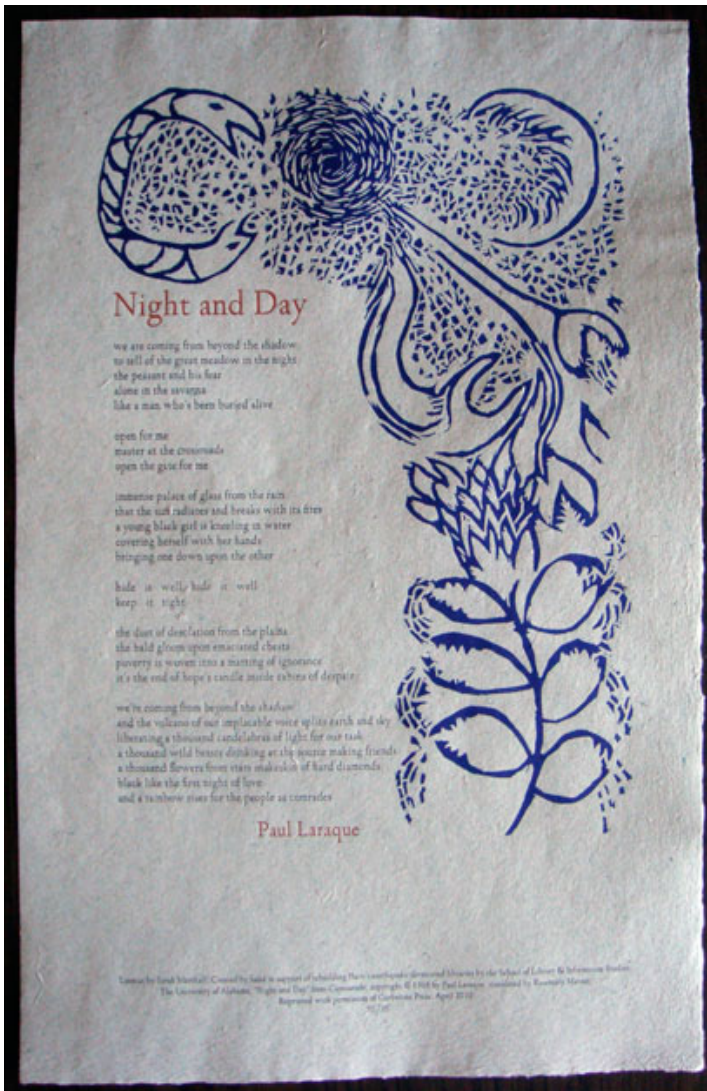 Night and Day
we are coming from beyond the shadow
to tell of the great meadow in the night
the peasant and his fear
alone in the savanna
like a man who's been buried alive
open for me
master at the crossroads
open the gate for me
immense palace of glass from the rain
that the sun radiates and breaks with its fires
a young black girl is kneeling in water
covering herself with her hands
bringing one down upon the other
hide it well hide it well
keep it tight
the dust of desolation from the plains
the bald gloom upon emaciated chests
poverty is woven into a matting of ignorance
it's the end of hope's candle inside cabins of despair
we're coming from beyond the shadow
and the volcano of our implacable voice splits earth and sky
liberating a thousand candelabras of light for our task
a thousand wild beasts drinking at the source making friends
a thousand flowers from stars of hard diamonds
black like the first night of love
and a rainbow rises for the people as comrades
Paul Laraque
by Sarah Created by hand in support of rebuilding Haiti's earthquake-devastated libraries by the School of Library & Information Studies
The University of Alabama. "Night and Day" from Camourade, copyright © 1988 by Paul Laraque, translated by Rosemary Manno.
Reprinted with permission of Curbstone Press. April 2010